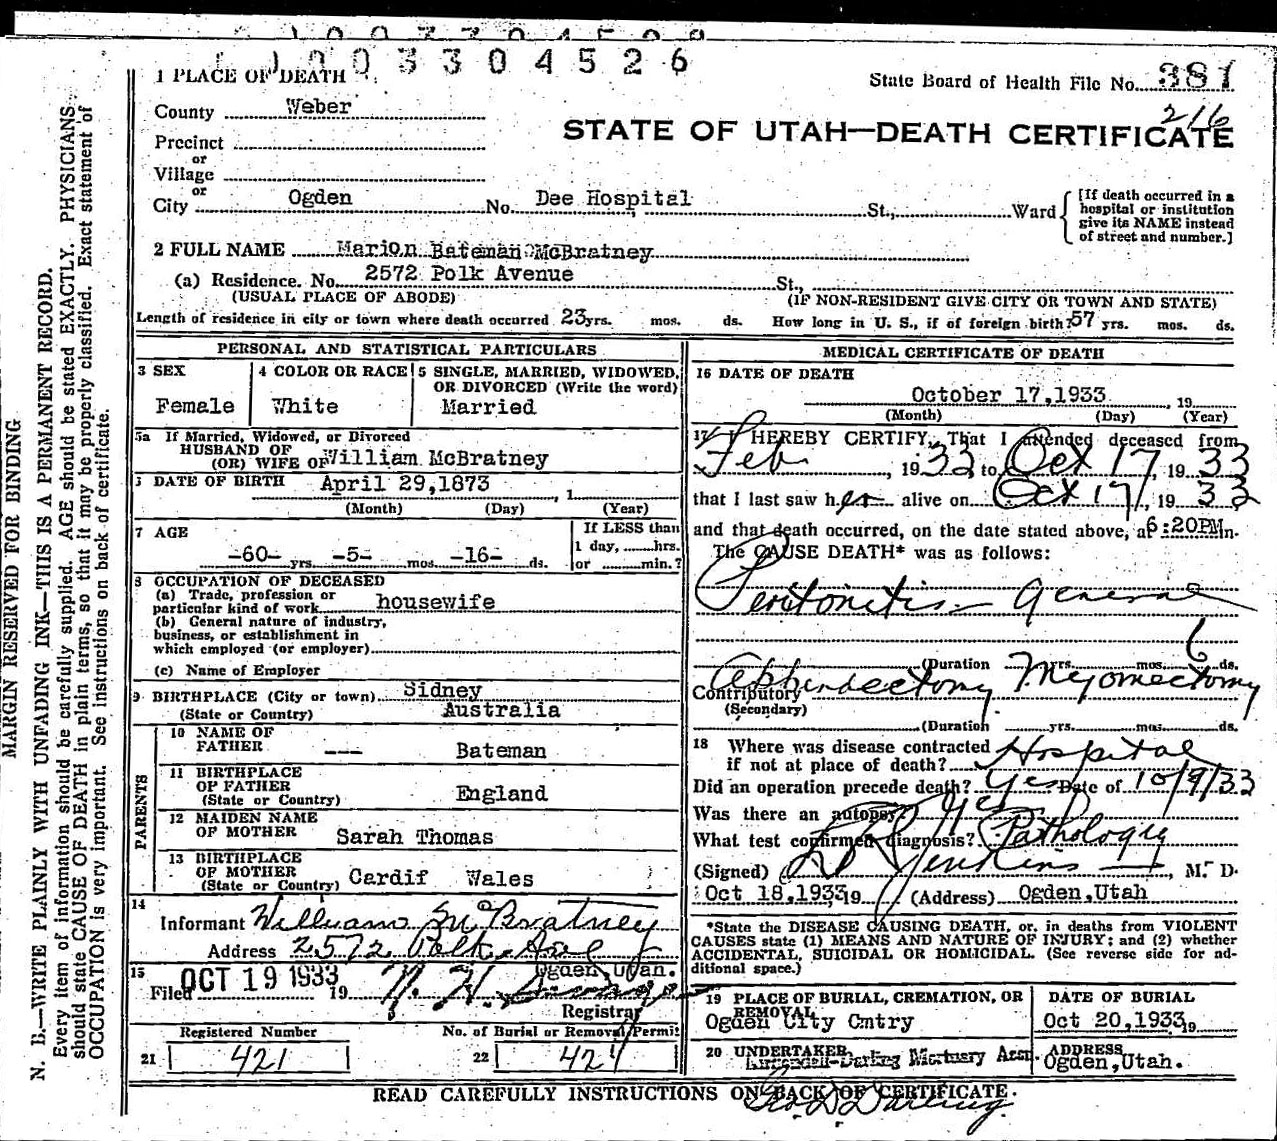 1003304526
1 PLACE OF DEATH
State Board of Health File No. 381
216
County Weber
STATE OF UTAH—DEATH CERTIFICATE
Precinct
or
Village
or
City Ogden No. Dee Hospital St., Ward
[If death occurred in a hospital or institution give its NAME instead of street and number.]
2 FULL NAME Marion Bateman McBratney
(a) Residence. No. 2572 Polk Avenue St.,
(USUAL PLACE OF ABODE) (IF NON-RESIDENT GIVE CITY OR TOWN AND STATE)
Length of residence in city or town where death occurred 23 yrs. mos. ds. How long in U. S., if of foreign birth? 57 yrs. mos. ds.
PERSONAL AND STATISTICAL PARTICULARS
3 SEX
Female
4 COLOR OR RACE
White
5 SINGLE, MARRIED, WIDOWED,
OR DIVORCED (Write the word)
Married
5a If Married, Widowed, or Divorced
HUSBAND OF
(OR) WIFE OF William McBratney
DATE OF BIRTH April 29,1873 , 1
(Month) (Day) (Year)
7 AGE
-60- yrs. -5- mos. -16- ds.
If LESS than
1 day, hrs.
or min.?
8 OCCUPATION OF DECEASED
(a) Trade, profession or
particular kind of work housewife
(b) General nature of industry,
business, or establishment in
which employed (or employer)
(c) Name of Employer
9 BIRTHPLACE (City or town) Sidney
(State or Country) Australia
PARENTS
10 NAME OF
FATHER --- Bateman
11 BIRTHPLACE
OF FATHER
(State or Country) England
12 MAIDEN NAME
OF MOTHER Sarah Thomas
13 BIRTHPLACE
OF MOTHER
(State or Country) Cardif Wales
14
Informant William McBratney
Address 2572 Polk Ave
Ogden,Utah.
15
Filed OCT 19 1933 19
Registrar
Registered Number
21 421
No. of Burial or Removal Permit
22 421
MEDICAL CERTIFICATE OF DEATH
16 DATE OF DEATH
October 17,1933 , 19
(Month) (Day) (Year)
17 I HEREBY CERTIFY, That I attended deceased from
Feb , 1933 to Oct 17, 1933
that I last saw her alive on Oct 17, 1933
and that death occurred, on the date stated above, at 6:20PM m.
The CAUSE DEATH* was as follows:
Peritonitis - General
(Duration yrs. mos. 6 ds.
Contributory Appendectomy Myomectomy
(Secondary)
(Duration yrs. mos. ds.
18 Where was disease contracted
if not at place of death? Hospital
Did an operation precede death? Yes Date of 10/9/33
Was there an autopsy? Yes
What test confirmed diagnosis? Pathology
(Signed) Jenkins , M. D.
Oct 18,1933 19 (Address) Ogden,Utah
*State the DISEASE CAUSING DEATH, or, in deaths from VIOLENT
CAUSES state (1) MEANS AND NATURE OF INJURY; and (2) whether
ACCIDENTAL, SUICIDAL OR HOMICIDAL. (See reverse side for ad-
ditional space.)
19 PLACE OF BURIAL, CREMATION, OR
REMOVAL
Ogden City Cmtry
DATE OF BURIAL
Oct 20,1933 19
20 UNDERTAKER
Darling Mortuary Assn.
ADDRESS
Ogden,Utah.
READ CAREFULLY INSTRUCTIONS ON BACK OF CERTIFICATE.
Geo D Darling
MARGIN RESERVED FOR BINDING
N. B.—WRITE PLAINLY WITH UNFADING INK—THIS IS A PERMANENT RECORD.
Every item of information should be carefully supplied. AGE should be stated EXACTLY. PHYSICIANS
should state CAUSE OF DEATH in plain terms, so that it may be properly classified. Exact statement of
OCCUPATION is very important. See instructions on back of certificate.